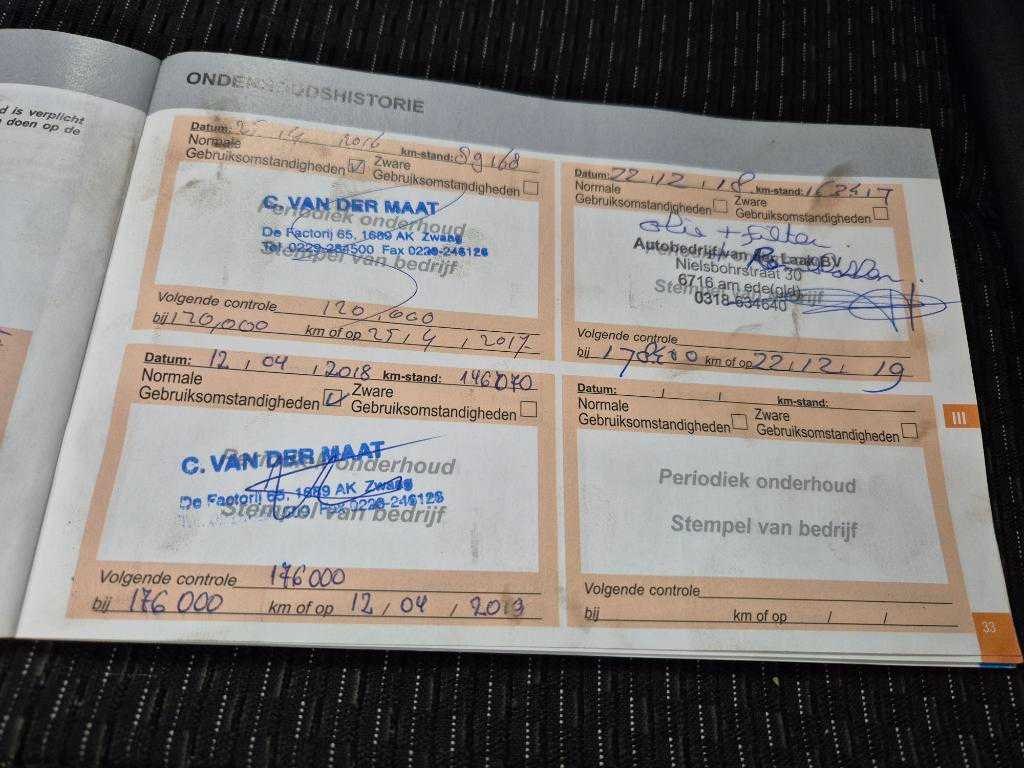 d is verplicht
doen op de
ONDERHOUDSHISTORIE
Datum: 25 , 4 , 2016 km-stand: 89168
Normale Gebruiksomstandigheden Zware Gebruiksomstandigheden
C. VAN DER MAAT
Periodiek onderhoud
De Factorij 65, 1689 AK Zwaag
Tel. 0229-284500 Fax 0229-246126
Stempel van bedrijf
Volgende controle 120,000
bij 120,000 km of op 25 , 4 , 2017
Datum: 12 , 04 , 2018 km-stand: 146070
Normale Gebruiksomstandigheden Zware Gebruiksomstandigheden
C. VAN DER MAAT
Periodiek onderhoud
De Factorij 65, 1689 AK Zwaag
Fax 0229-246126
Stempel van bedrijf
Volgende controle 176000
bij 176000 km of op 12 , 04 , 2019
Datum: 22 , 12 , 18 km-stand:
Normale Gebruiksomstandigheden Zware Gebruiksomstandigheden
olie + filter
Autobedrijf van der Laak BV
Nielsbohrstraat 30
6716 am ede(gld)
Stempel van bedrijf
0318-634640
Volgende controle
bij km of op 22 , 12 , 19
Datum: / / km-stand:
Normale Gebruiksomstandigheden Zware Gebruiksomstandigheden
Periodiek onderhoud
Stempel van bedrijf
Volgende controle
bij km of op / /
III
33